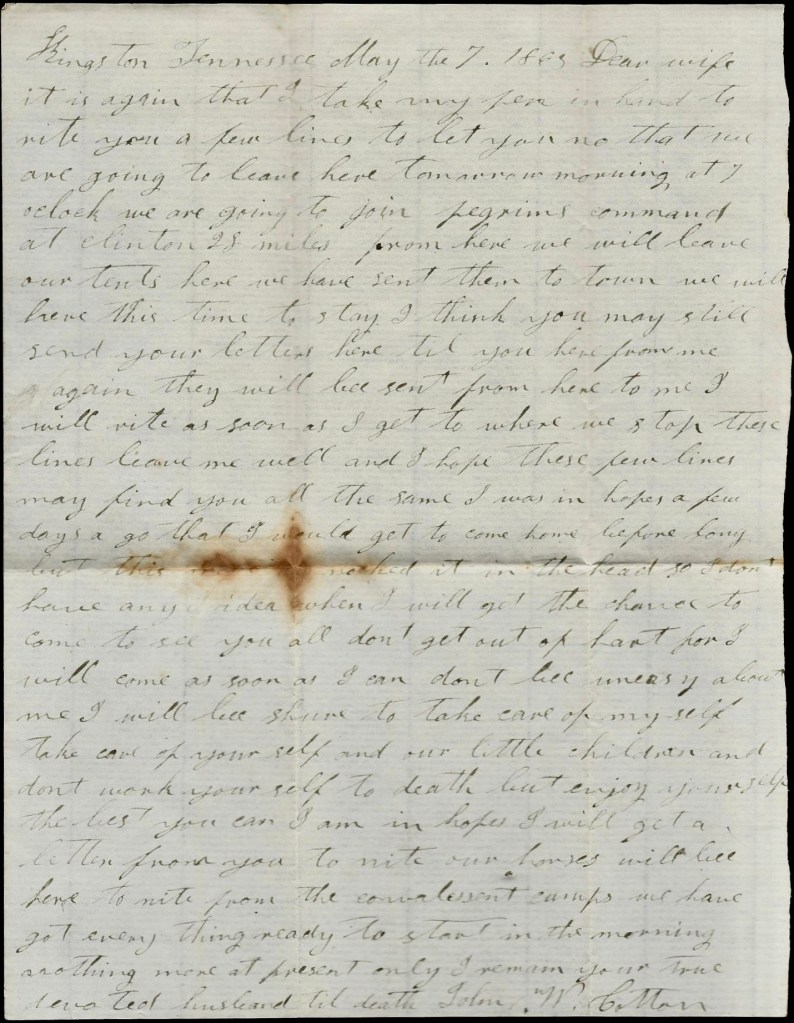 Kingston Tennessee May the 7. 1863 Dear wife
it is again that I take my pen in hand to
rite you a few lines to let you no that we
are going to leave here tomarrow morning at 7
oclock we are going to join pegrims command
at clinton 28 miles from here we will leave
our tents here we have sent them to town we will
leeve this time to stay I think you may still
send your letters here til you here from me
again they will bee sent from here to me I
will rite as soon as I get to where we stop these
lines leave me well and I hope these few lines
may find you all the same I was in hopes a few
days a go that I would get to come home before long
but this nocked it in the head so I dont
have any idea when I will get the chance to
come to see you all dont get out of hart for I
will come as soon as I can dont bee uneasy about
me I will bee shure to take care of my self
take care of your self and our little children and
dont work your self to death but enjoy your self
the best you can I am in hopes I will get a
letter from you to nite our horses will bee
here to nite from the convalessent camps we have
got every thing ready to start in the morning
nothing more at present only I remain your true
devoted husband til death John W. Cotton